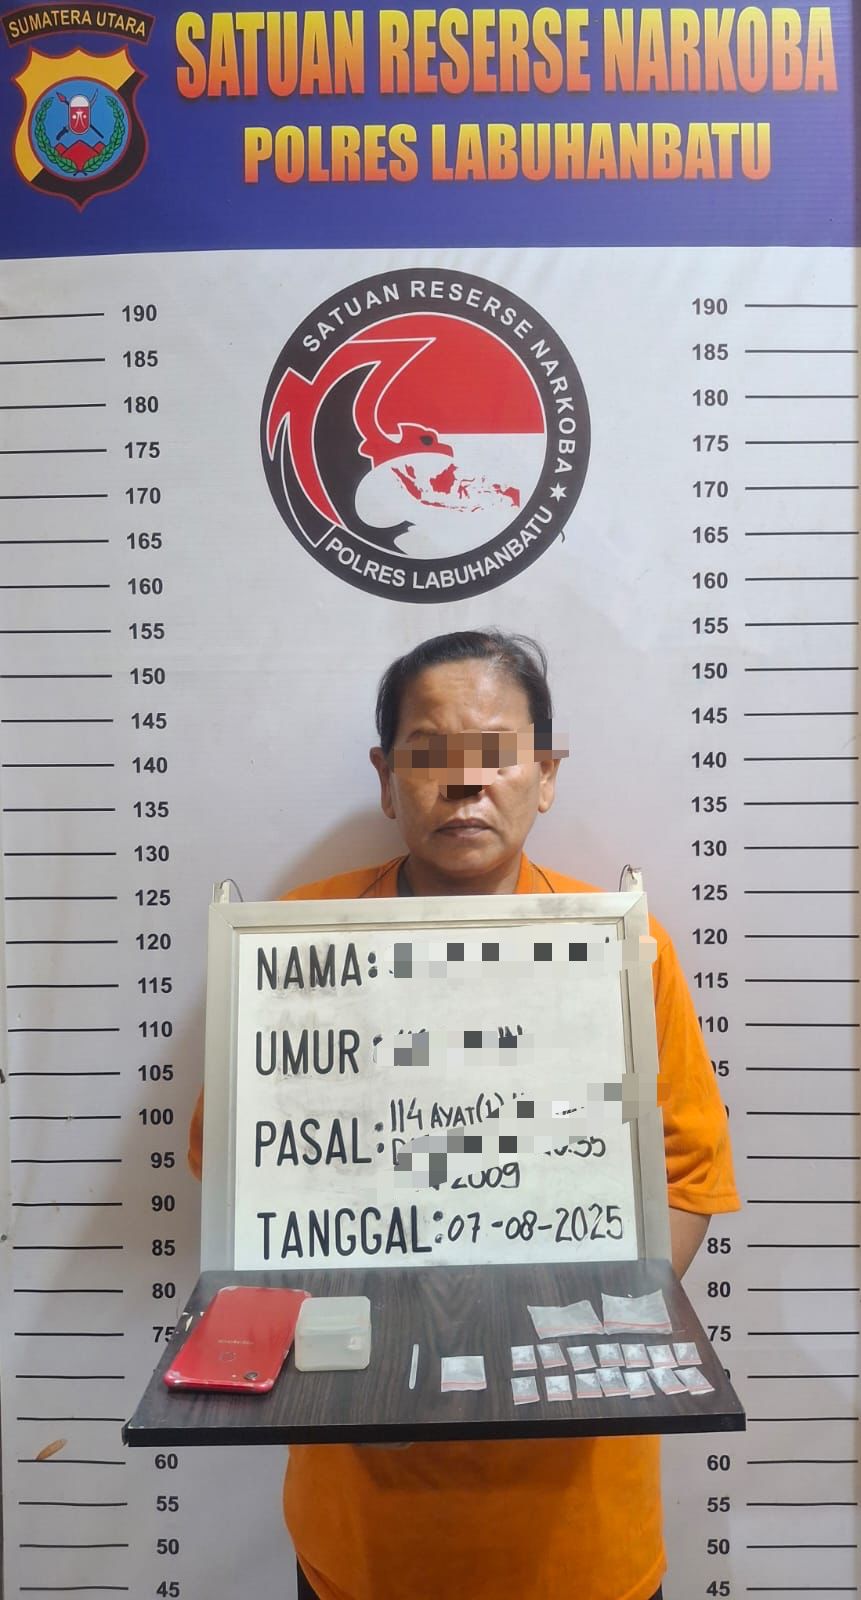 SUMATERA UTARA
SATUAN RESERSE NARKOBA
POLRES LABUHANBATU
SATUAN RESERSE NARKOBA
POLRES LABUHANBATU
190 190
185 185
180 180
175 175
170 170
165 165
160 160
155 155
150 150
145 145
140 140
135 135
130 130
125 125
120 120
115 115
110
105
100
95
90
85 85
80 80
75 75
60 60
55 55
50 50
45 45
NAMA:
UMUR
PASAL: 114 AYAT (1)
2009
TANGGAL: 07-08-2025